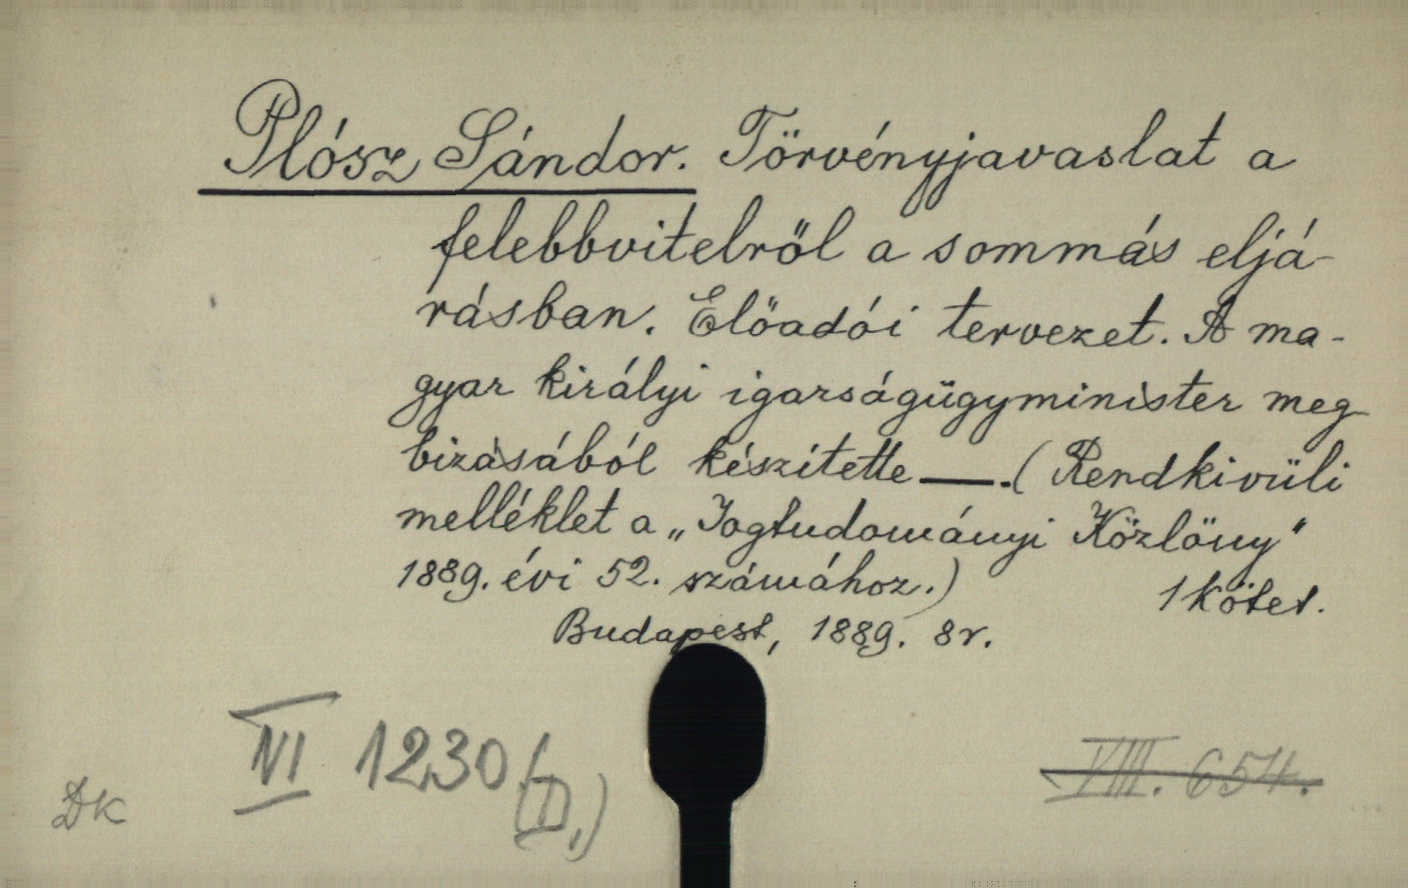 Plósz Sándor. Törvényjavaslat a
felebbvitelről a sommás eljá-
rásban. Előadói tervezet. A ma-
gyar királyi igazságügyminister meg
bizásából készítette —. (Rendkivüli
melléklet a „Jogtudományi Közlöny"
1889. évi 52. számához.)
1 kötet.
Budapest, 1889. 8r.
VI 1230/
(D.)
VIII. 654.
DK